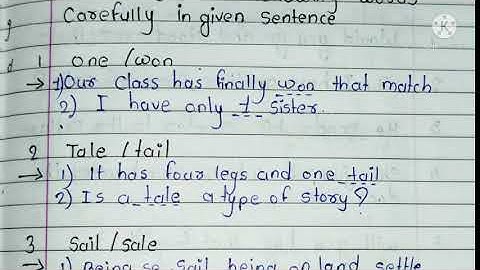 Carefully in given sentence
1 one / won
→ 1) Our class has finally won that match
2) I have only 1 sister.
2 Tale / tail
→ 1) It has four legs and one tail
2) Is a tale a type of story?
3 Sail / Sale
→ 1) Being so Sail being on land settle